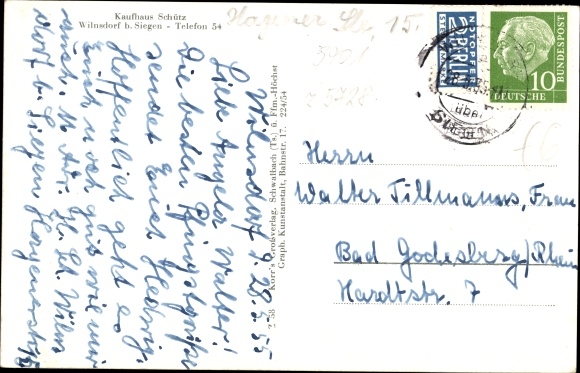 Kaufhaus Schütz
Wilnsdorf b. Siegen - Telefon 54
Wilnsdorf, 28.5.55
Liebe Angela Walter!
Die besten Pfingstgrüße
sendet Euch Hedwig.
Hoffentlich geht es
Euch noch gut wie mir
auch. N. Adr. H. St. Wilns
dorf b. Siegen Hagenerstr. 15
Korr's Großverlag, Schwalbach (Ts.) ü. Ffm.-Höchst
Graph. Kunstanstalt, Bahnstr. 17. 224/54
Hanner Str. 15.
z 5728
NOTOPFER
2 BERLIN
STEUERMARKE
über
SIEGEN
DEUTSCHE
BUNDESPOST
10
Herrn
Walter Tillmanns, Frau
Bad Godesberg/Rhein
Hardtstr. 7